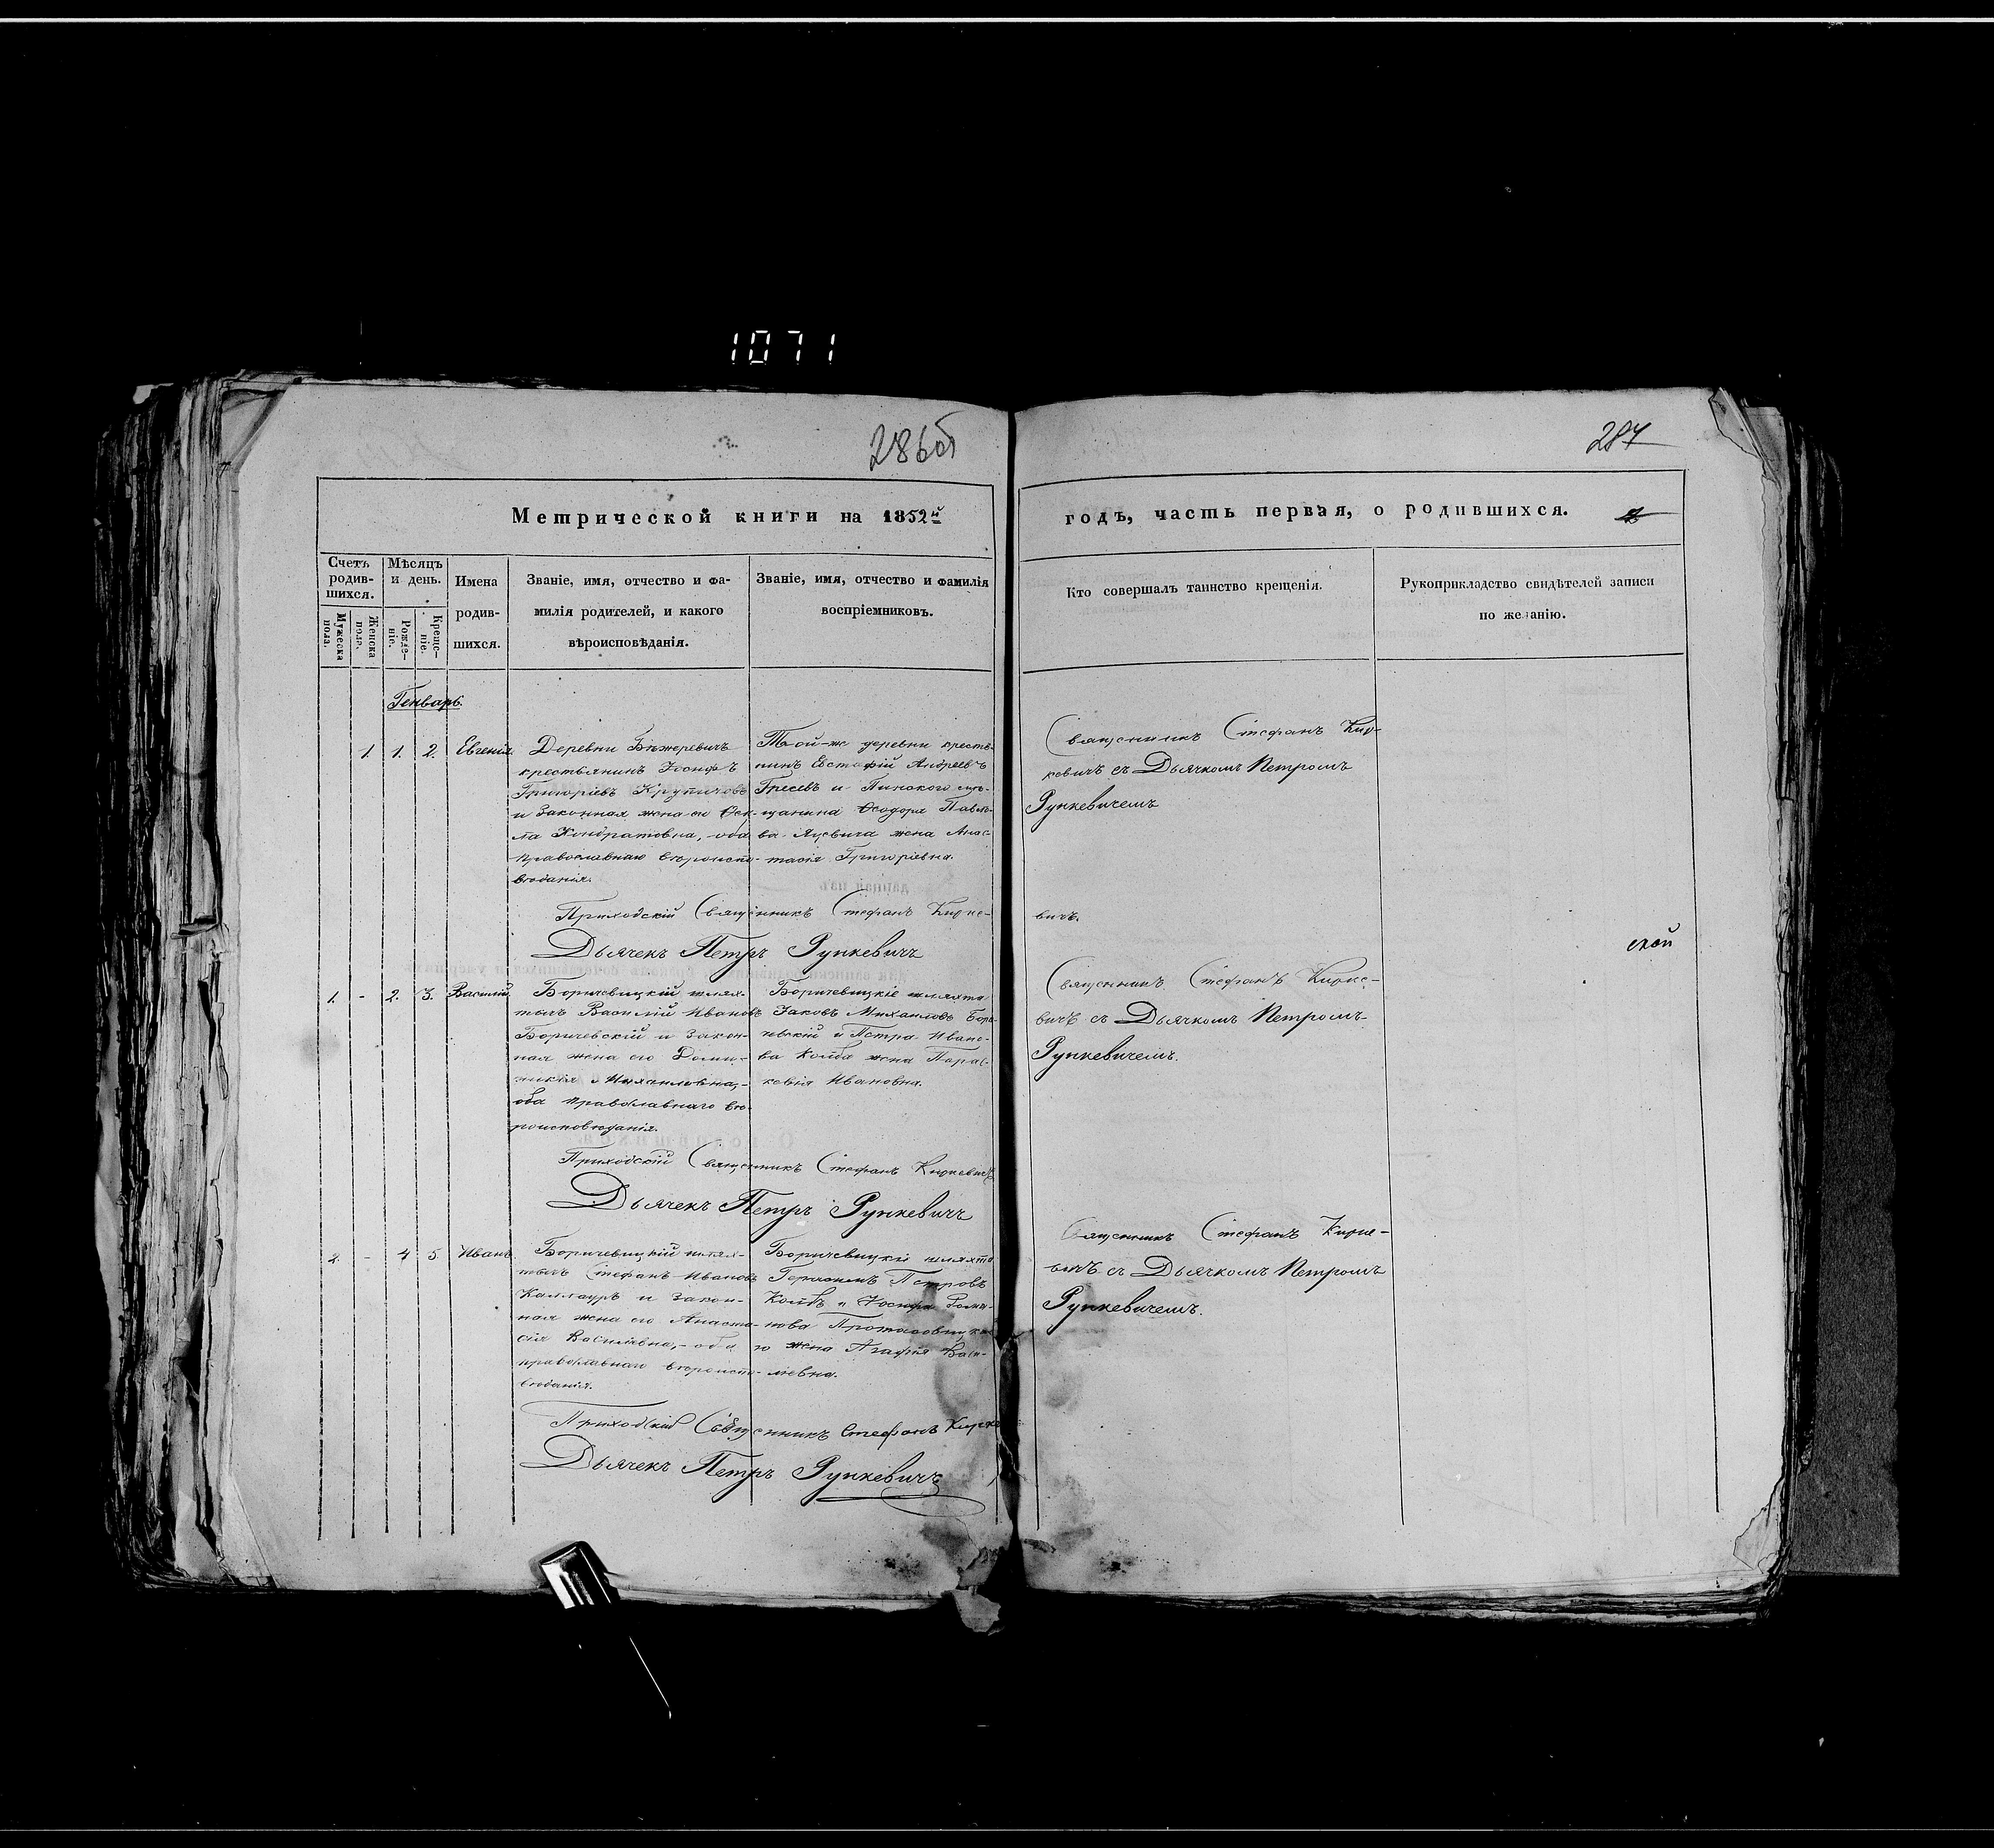 1071
286об
287
Метрической книги на 1852й
годъ, часть первая, о родившихся.
Счетъ родив-шихся.
Мѣсяцъ и день.
Имена родив-шихся.
Званіе, имя, отчество и фа-
милія родителей, и какого
вѣроисповѣданія.
Званіе, имя, отчество и фамилія
воспріемниковъ.
Кто совершалъ таинство крещенія.
Рукоприкладство свидѣтелей записи
по желанію.
Мужеска пола.
Женска пола.
Рожде-ніе.
Креще-ніе.
Генварь.
1. 1. 2. Евгенія.
Деревни Бѣжеревичъ
крестьянинъ Іосифъ
Григоріевъ
и законная жена его Өек-
ла Кондратовна, оба
православнаго вѣроиспо-
вѣданія.
Той-же деревни кресть-
нинъ Евстафій Андреевъ
и Пинскаго мѣ-
щанина Ѳеодора Павло-
ва Яцевича жена Анас-
тасія Григоріевна.
Священникъ Стефанъ Кир-
кевичъ съ Дьячкомъ Петромъ
Рункевичемъ
Приходскій Священникъ Стефанъ Кирке-
вичъ.
Дьячекъ Петръ Рункевичъ
ской
1. - 2. 3. Василій.
Боричевицкій шлях-
тичъ Василій Ивановъ
Боричевскій и закон-
ная жена его Доми-
никія Михаиловна,-
оба православнаго вѣ-
роисповѣданія.
Боричевицкіе шляхти
Іаковъ Михаиловъ Бори-
чевскій и Петра Ивано-
ва Колба жена Парас-
кевія Ивановна.
Священникъ Стефанъ Кирке-
вичъ съ Дьячкомъ Петромъ
Рункевичемъ.
Приходскій Священникъ Стефанъ Киркевичъ
Дьячекъ Петръ Рункевичъ
2. - 4 5 Иванъ
Боричевицкій шлях-
тичъ Стефанъ Ивановъ
Каллауръ и закон-
ная жена его Анаста-
сія Васильевна,- оба
православнаго вѣроиспо-
вѣданія.
Боричевицкіе шляхти
Герасимъ Петровъ
Колбъ и Іосифа Рома-
нова Протасовицка
го жена Агафія Васи-
льевна.
Священникъ Стефанъ Кирке-
вичъ съ Дьячкомъ Петромъ
Рункевичемъ.
Приходскій Священникъ Стефанъ Кирке
Дьячекъ Петръ Рункевичъ